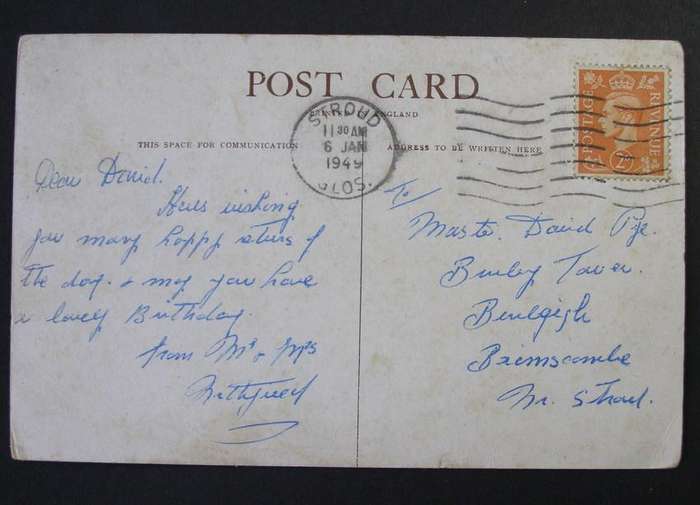 POST CARD
PRINTED ENGLAND
THIS SPACE FOR COMMUNICATION
ADDRESS TO BE WRITTEN HERE
STROUD
11 30 AM
6 JAN
1949
GLOS.
POSTAGE
REVENUE
Dear David.
Heres wishing
you many happy returns of
the day. & may you have
a lovely Birthday.
from Mr & Mrs
To
Master David Pye.
Burley
Brimscombe
Nr. Stroud.